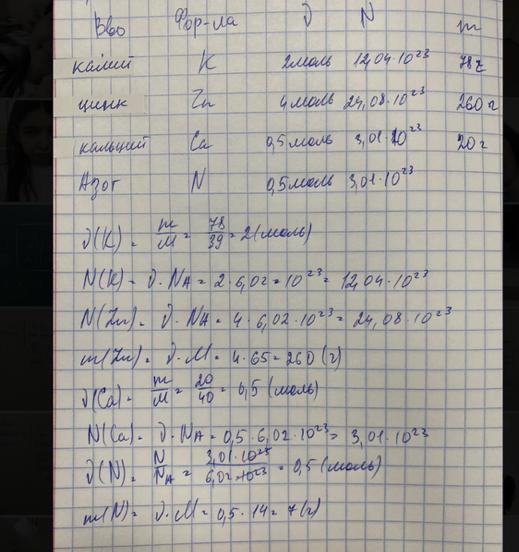 Вво Фор-ла ν N m
калий K 2моль 12,04·10²³ 78 г
цинк Zn 4 моль 24,08·10²³ 260 г
кальций Ca 0,5 моль 3,01·10²³ 20 г
Азот N 0,5 моль 3,01·10²³
ν(K) = m/M = 78/39 = 2 (моль)
N(K) = ν·NA = 2·6,02=10²³= 12,04·10²³
N(Zn) = ν·NA = 4·6,02·10²³= 24,08·10²³
m(Zn) = ν·M = 4·65=260 (г)
ν(Ca) = m/M = 20/40 = 0,5 (моль)
N(Ca) = ν·NA = 0,5·6,02·10²³= 3,01·10²³
ν(N) = N/NA = 3,01·10²³/6,02·10²³ = 0,5 (моль)
m(N) = ν·M = 0,5·14 = 7 (г)